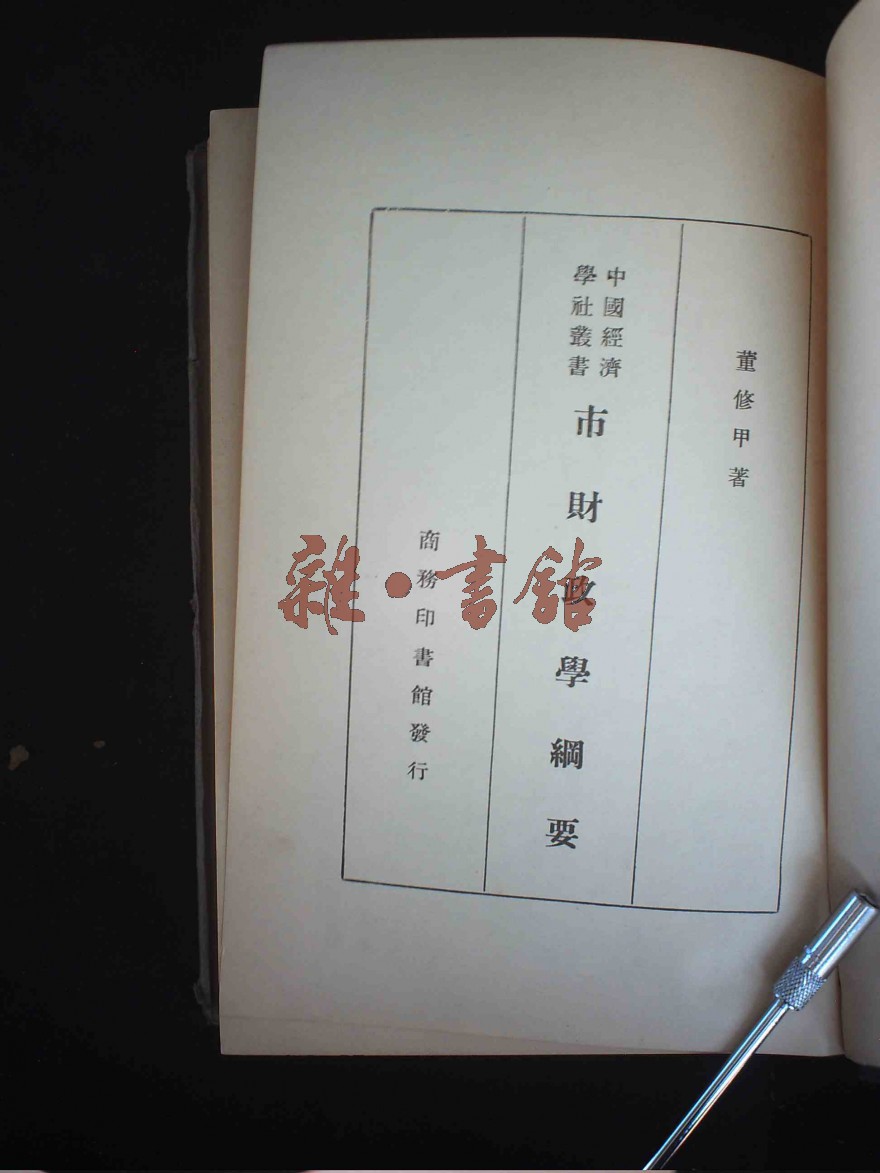 董修甲著
中國經濟
學社叢書
市財政學綱要
商務印書館發行
雜·書館